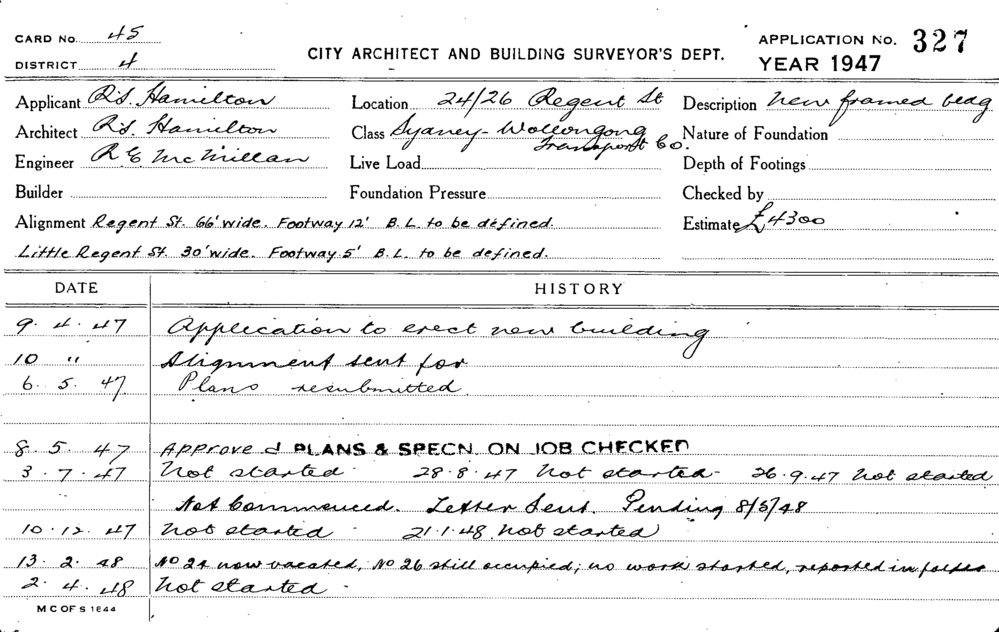 CARD No. 45
DISTRICT 4
CITY ARCHITECT AND BUILDING SURVEYOR'S DEPT.
APPLICATION No. 327
YEAR 1947
Applicant R.S. Hamilton
Location 24/26 Regent St
Description New framed bldg
Architect R.S. Hamilton
Class Sydney-Wollongong Transport Co.
Nature of Foundation
Engineer R E McMillan
Live Load
Depth of Footings
Builder
Foundation Pressure
Checked by
Alignment Regent St. 66' wide. Footway 12' B.L. to be defined.
Estimate £4300
Little Regent St. 30' wide. Footway 5' B.L. to be defined.
DATE HISTORY
9. 4. 47 Application to erect new building
10 " Alignment sent for
6. 5. 47 Plans resubmitted
8. 5. 47 Approved PLANS & SPECN. ON JOB CHECKED
3. 7. 47 Not started 28.8.47 Not started 26.9.47 Not started
Not Commenced. Letter Sent. Pending 8/5/48
10.12.47 Not started 21.1.48 Not started
13. 2. 48 No 24 now vacated, No 26 still occupied; no work started, reported in folder
2. 4. 48 Not started
M C OF S 1844